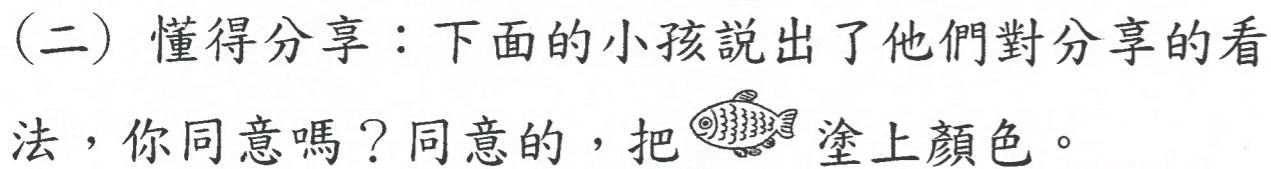 （二）懂得分享：下面的小孩説出了他們對分享的看
法，你同意嗎？同意的，把 塗上顏色。